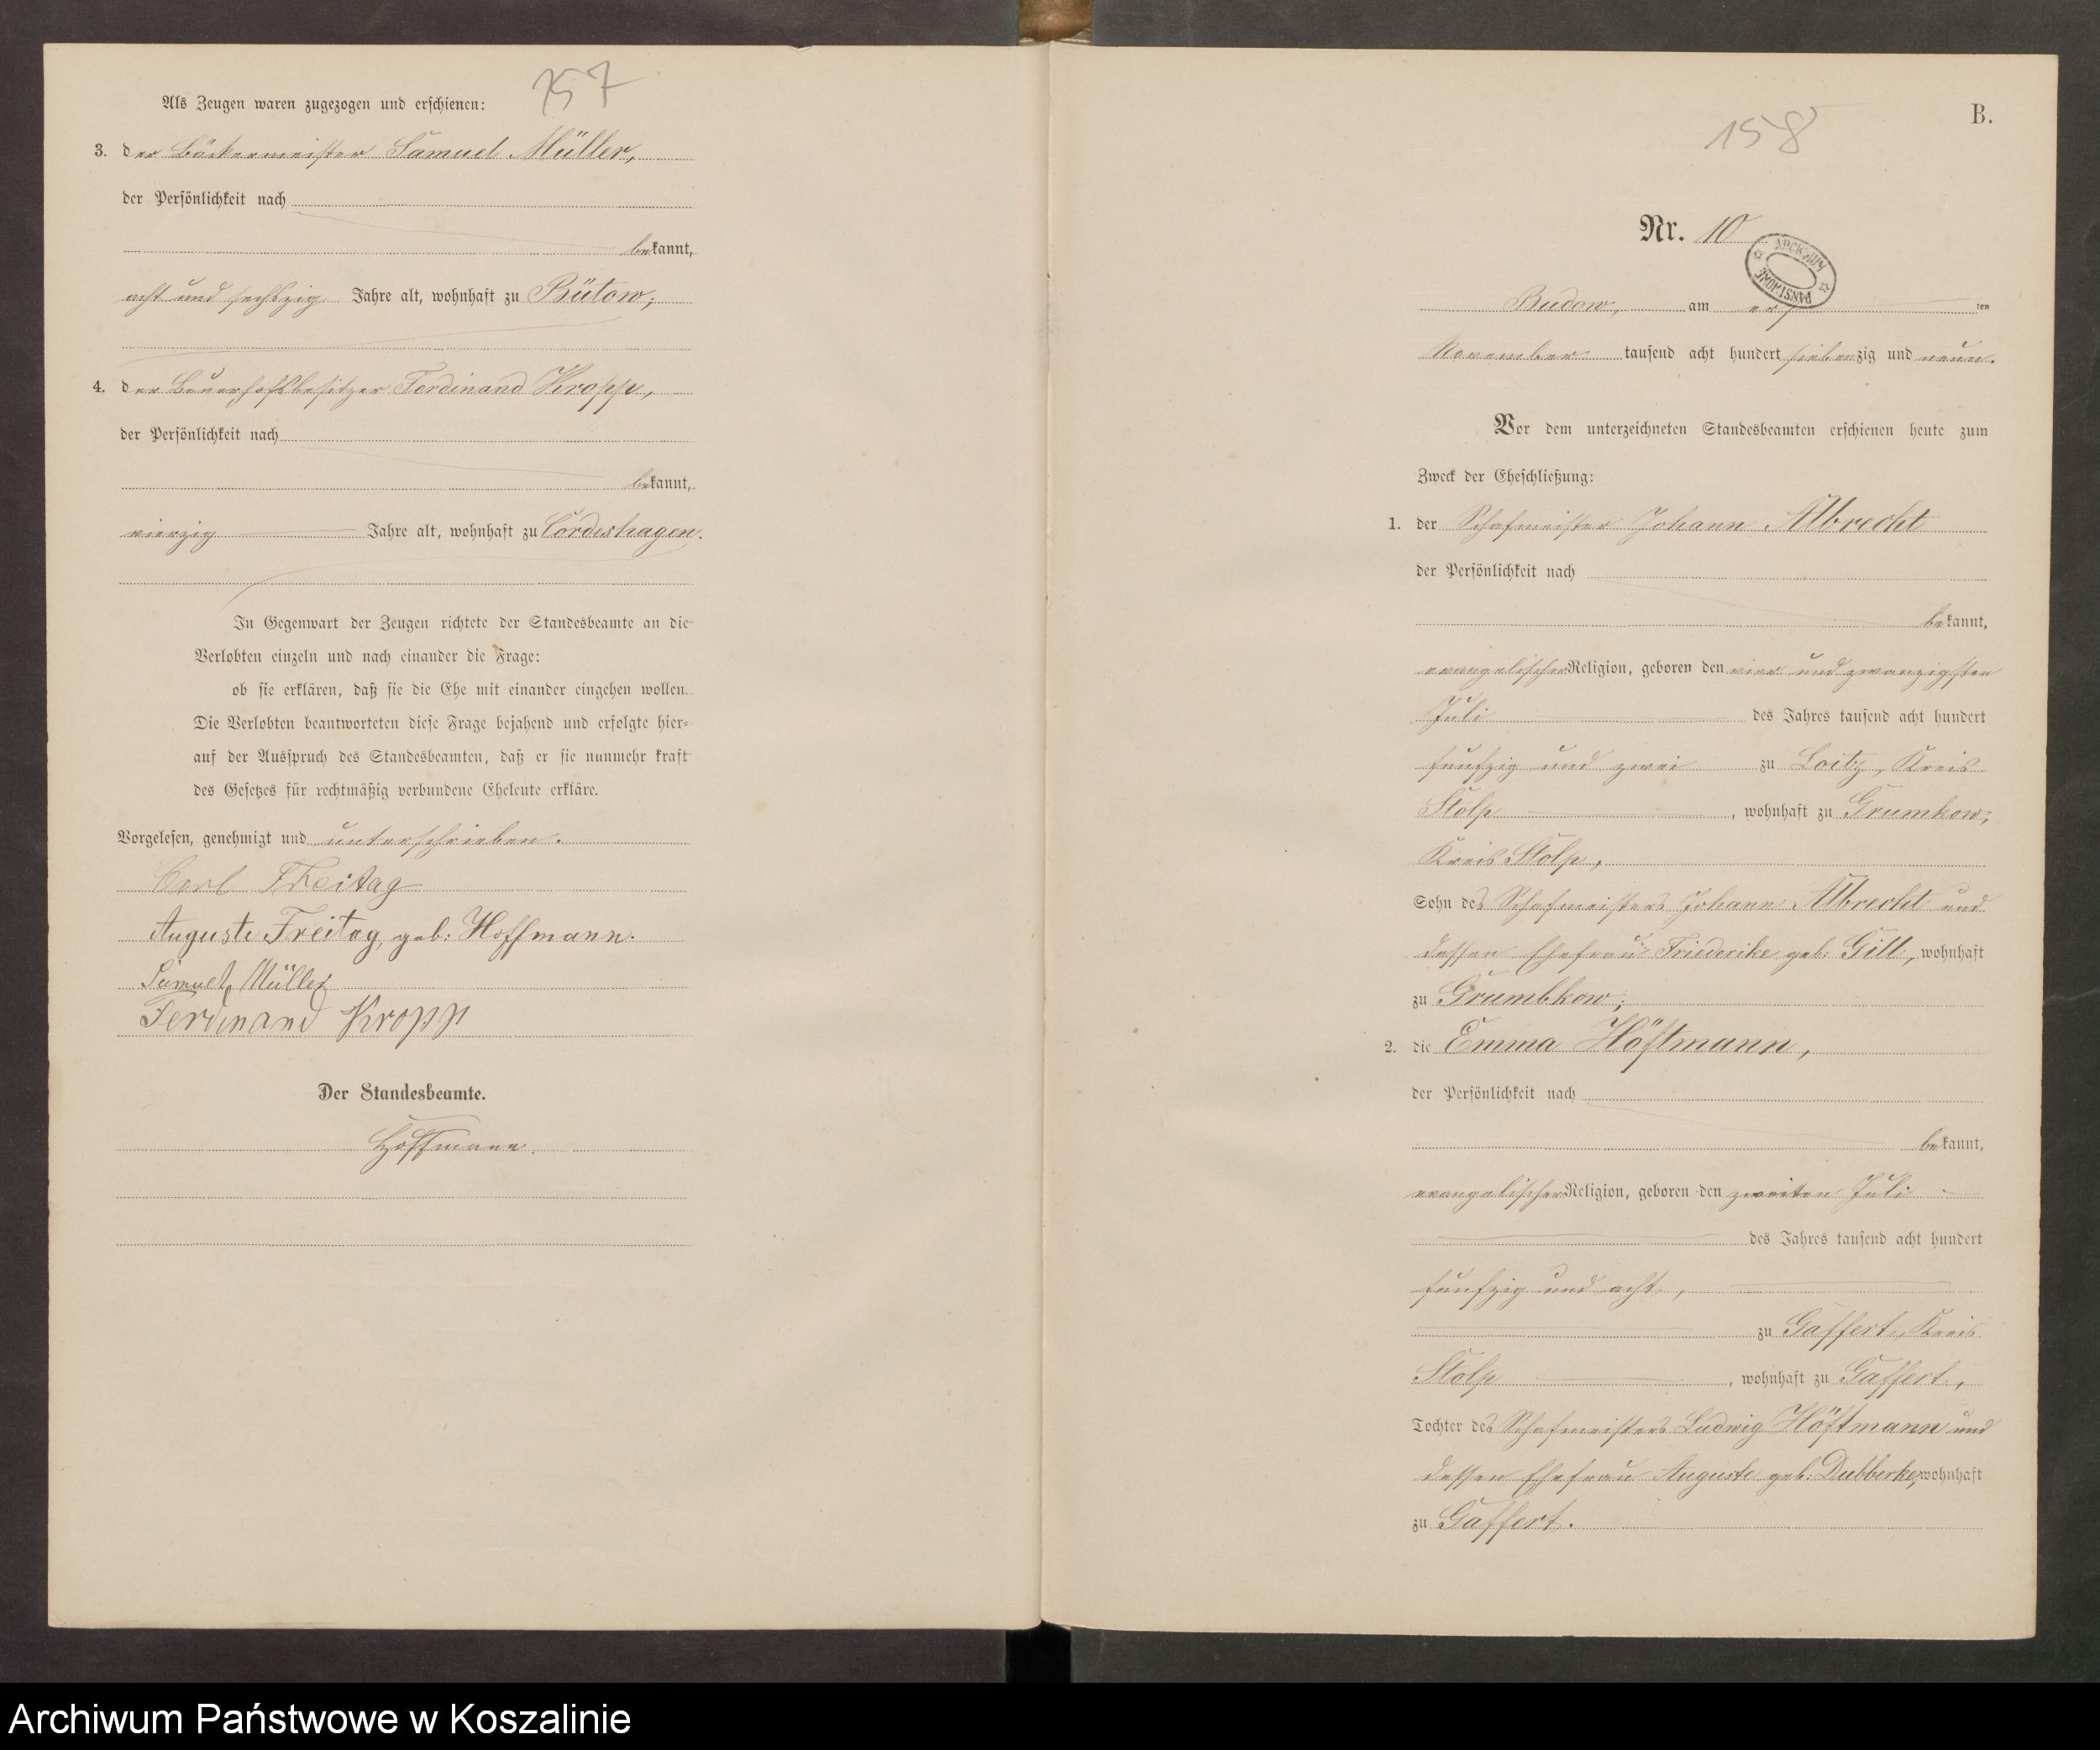 157
Als Zeugen waren zugezogen und erschienen:
3. der Bäckermeister Samuel Müller,
der Persönlichkeit nach
bekannt,
acht und sechszig Jahre alt, wohnhaft zu Bütow,
4. der Bauerhofsbesitzer Ferdinand Kropp,
der Persönlichkeit nach
bekannt,
vierzig Jahre alt, wohnhaft zu Cordeshagen.
In Gegenwart der Zeugen richtete der Standesbeamte an die
Verlobten einzeln und nach einander die Frage:
ob sie erklären, daß sie die Ehe mit einander eingehen wollen.
Die Verlobten beantworteten diese Frage bejahend und erfolgte hier-
auf der Ausspruch des Standesbeamten, daß er sie nunmehr kraft
des Gesetzes für rechtmäßig verbundene Eheleute erkläre.
Vorgelesen, genehmigt und unterschrieben.
Carl Freitag
Auguste Freitag, geb: Hoffmann.
Samuel Müller
Ferdinand Kropp
Der Standesbeamte.
Hoffmann.
B.
158
Nr. 10
ARCHIWUM PAŃSTWOWE
Budow, am ten
November tausend acht hundert siebenzig und neun.
Vor dem unterzeichneten Standesbeamten erschienen heute zum
Zweck der Eheschließung:
1. der Schafmeister Johann Albrecht
der Persönlichkeit nach
bekannt,
evangelischer Religion, geboren den vier und zwanzigsten
Juli des Jahres tausend acht hundert
funfzig und zwei zu Loitz, Kreis
Stolp, wohnhaft zu Grumkow,
Kreis Stolp,
Sohn des Schafmeisters Johann Albrecht und
dessen Ehefrau Friederike geb: Gill, wohnhaft
zu Grumbkow;
2. die Emma Höftmann,
der Persönlichkeit nach
bekannt,
evangelischer Religion, geboren den zweiten Juli
des Jahres tausend acht hundert
funfzig und acht,
zu Gaffert, Kreis
Stolp, wohnhaft zu Gaffert,
Tochter des Schafmeisters Ludwig Höftmann und
dessen Ehefrau Auguste geb: Dubberke, wohnhaft
zu Gaffert.
Archiwum Państwowe w Koszalinie